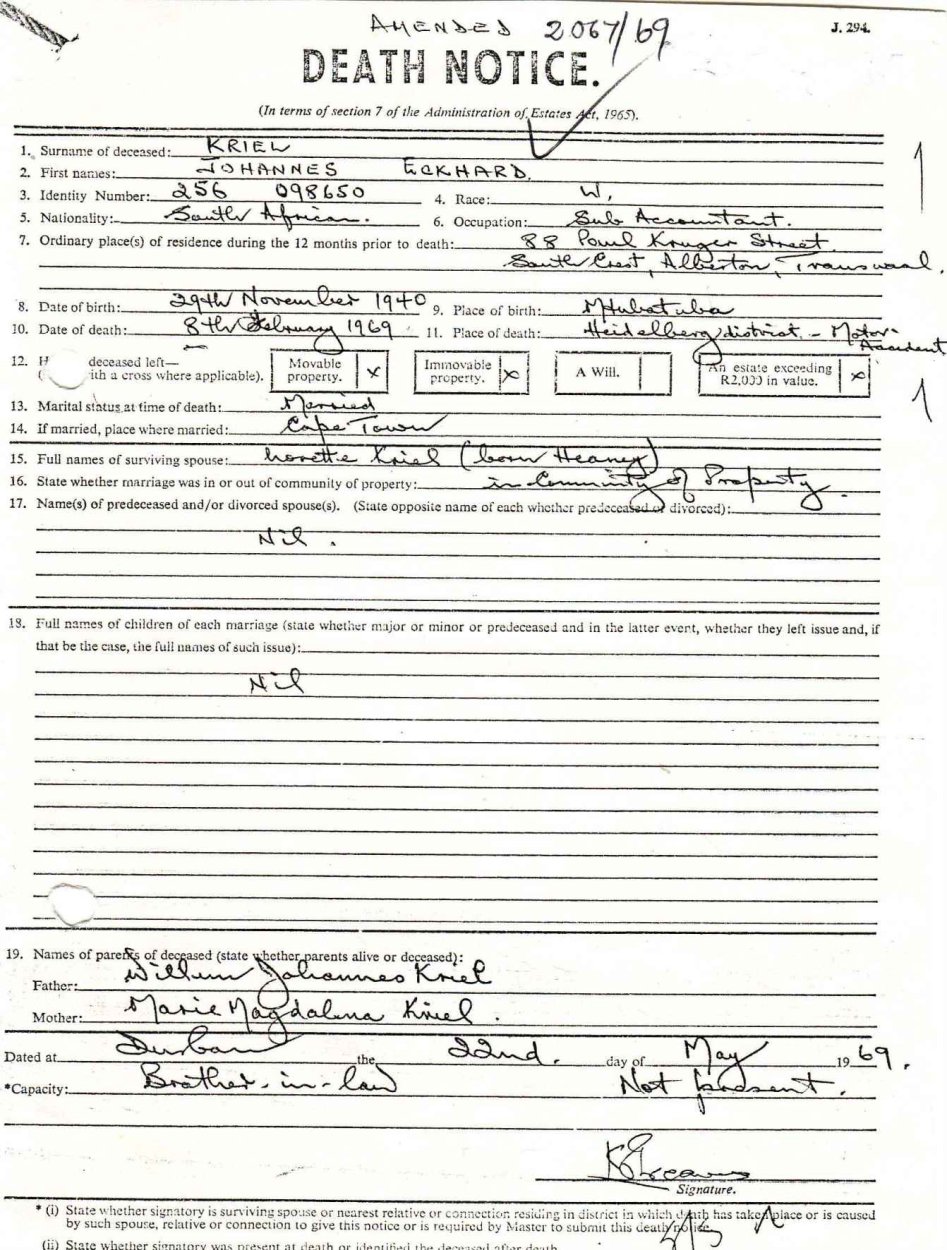 AMENDED 2067/69
J. 294.
DEATH NOTICE.
(In terms of section 7 of the Administration of Estates Act, 1965).
1. Surname of deceased: KRIEL
2. First names: JOHANNES ECKHARD.
3. Identity Number: 256 098650 4. Race: W.
5. Nationality: South African. 6. Occupation: Sub Accountant.
7. Ordinary place(s) of residence during the 12 months prior to death: 88 Paul Kruger Street
South Crest, Alberton, Transvaal.
8. Date of birth: 29th November 1940 9. Place of birth: Mtubatuba
10. Date of death: 8th February 1969 11. Place of death: Heidelberg district - Motor
Accident
12. H deceased left—
( ith a cross where applicable). Movable property. x Immovable property. x A Will. An estate exceeding R2,000 in value. x
13. Marital status at time of death: Married
14. If married, place where married: Cape Town
15. Full names of surviving spouse: Kriel (born Heaney)
16. State whether marriage was in or out of community of property: in Community of Property.
17. Name(s) of predeceased and/or divorced spouse(s). (State opposite name of each whether predeceased or divorced):
Nil.
18. Full names of children of each marriage (state whether major or minor or predeceased and in the latter event, whether they left issue and, if
that be the case, the full names of such issue):
Nil
19. Names of parents of deceased (state whether parents alive or deceased):
Father: Willem Johannes Kriel
Mother: Marie Magdalena Kriel.
Dated at Durban the 22nd. day of May 1969.
*Capacity: Brother-in-law Not present.
Signature.
* (i) State whether signatory is surviving spouse or nearest relative or connection residing in district in which death has taken place or is caused
by such spouse, relative or connection to give this notice or is required by Master to submit this death notice.
(ii) State whether signatory was present at death or identified the deceased after death.